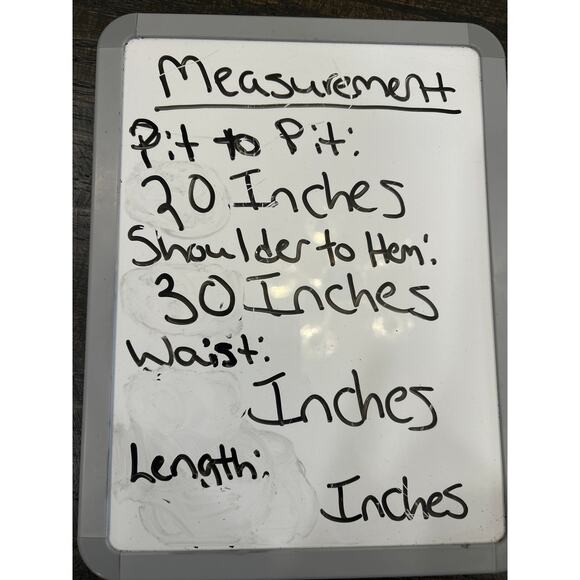 Measurement
Pit to Pit:
20 Inches
Shoulder to Hem:
30 Inches
Waist:
Inches
Length:
Inches